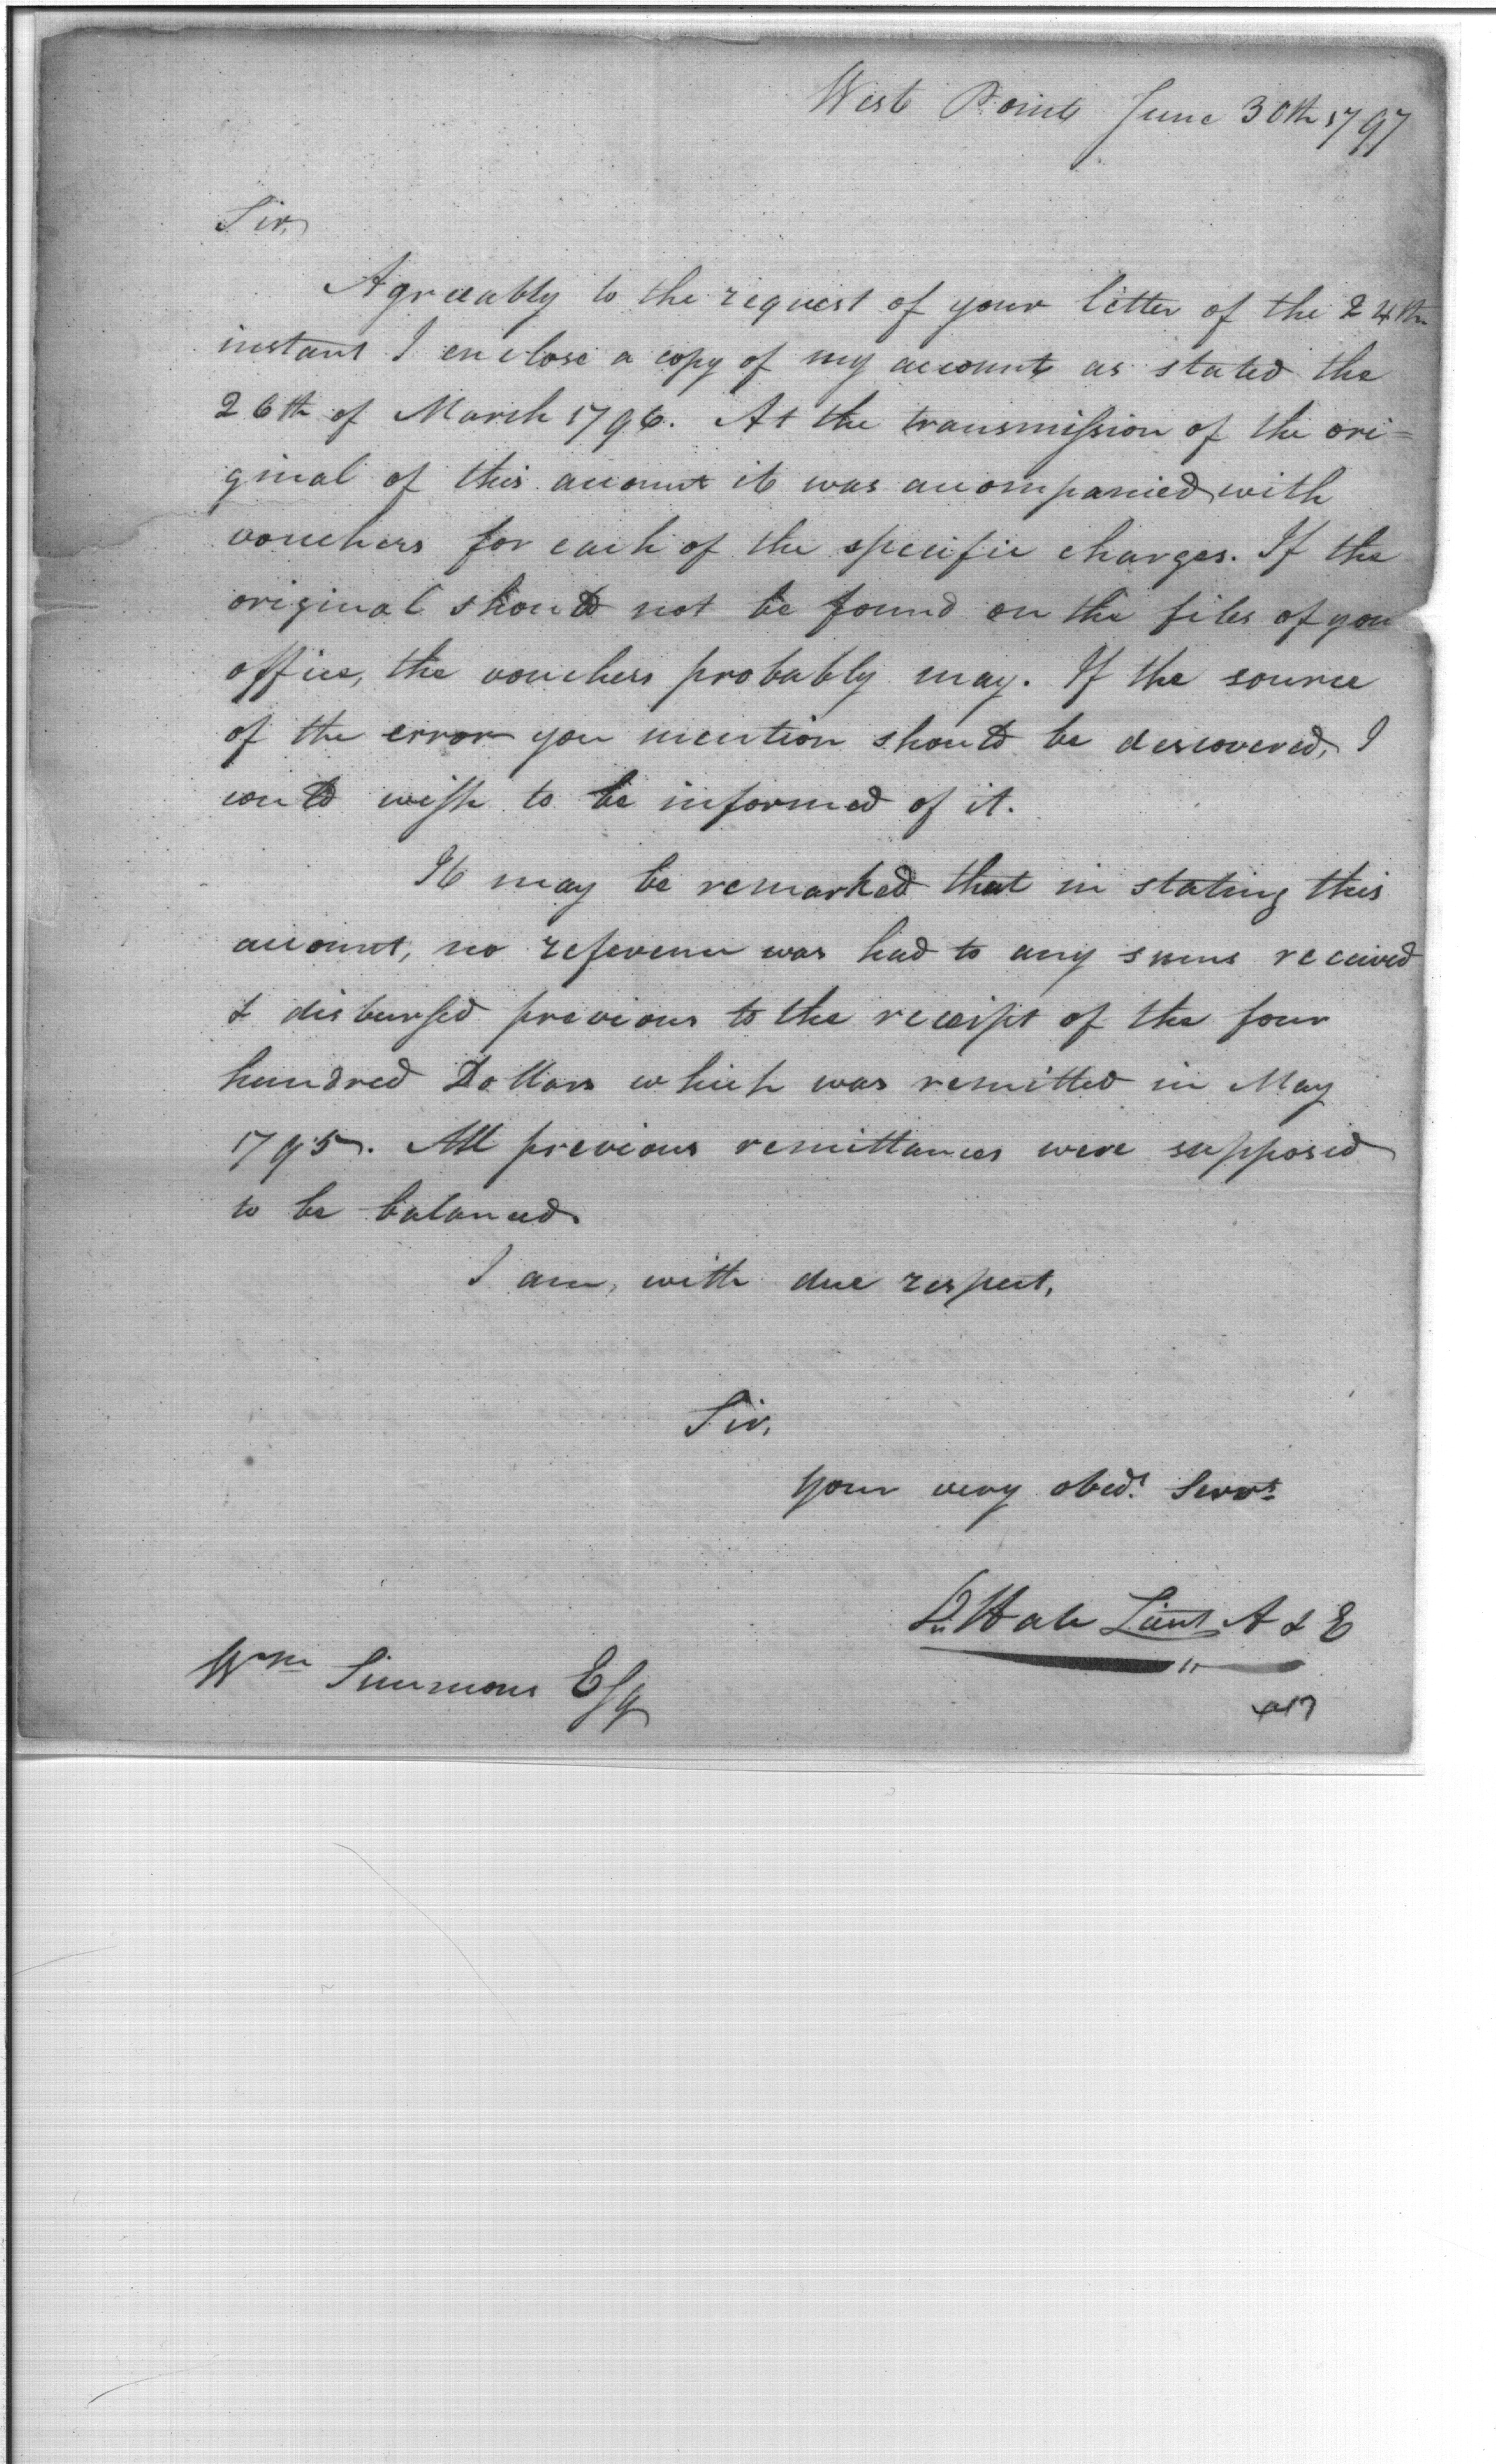 West Point June 30th 1797
Sir,
Agreeably to the request of your letter of the 24th
instant I enclose a copy of my account as stated the
26th of March 1796. At the transmission of the ori=
ginal of this account it was accompanied with
vouchers for each of the specific charges. If the
original should not be found on the files of you
office, the vouchers probably may. If the source
of the error you mention should be descovered, I
could wish to be informed of it.
It may be remarked that in stating this
account, no reference was had to any sums received
& disbursed previous to the receipt of the four
hundred Dollars which was remitted in May
1795. All previous remittances were supposed
to be balanced
I am, with due respect,
Sir,
your very obedt. Servt.
Hale Lieut A & E
Wm Simmons Esq